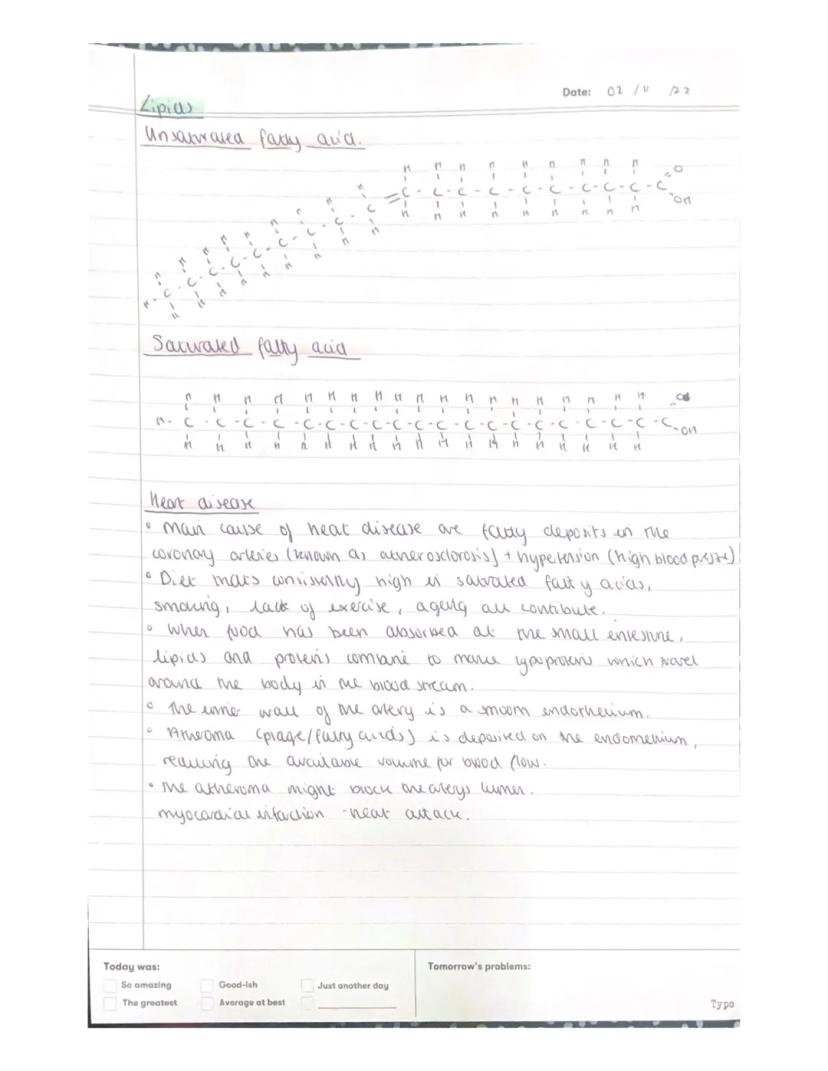 Date: 02 / 11 /22
Lipids
Unsaturated fatty acid.
H H H H H H H H H
C - C - C - C - C - C - C - C - C - C = O
H H H H H H H H H OH
Saturated fatty acid
H H H H H H H H H H H H H H H H H H
H - C - C - C - C - C - C - C - C - C - C - C - C - C - C - C - C - C - C - C - OH
H H H H H H H H H H H H H H H H H H
Heart disease
• Main cause of heat disease are fatty deposits in the
coronary arteries (known as atherosclorosis) + hypertension (high blood pressure)
• Diet thats consistently high in saturated fatty acids,
smoking, lack of exercise, ageing all contibute.
• When food has been absorbed at the small intestine,
lipids and proteins combine to make lypoproteins which travel
around the body in the blood stream.
• The inner wall of the artery is a smooth endothelium.
• Atheroma (plage/fatty acids) is deposited on the endothelium,
reducing the available volume for blood flow.
• The atheroma might block the arterys lumen.
myocardial infarction - heat attack.
Today was:
So amazing Good-ish Just another day
The greatest Average at best
Tomorrow's problems:
Typo